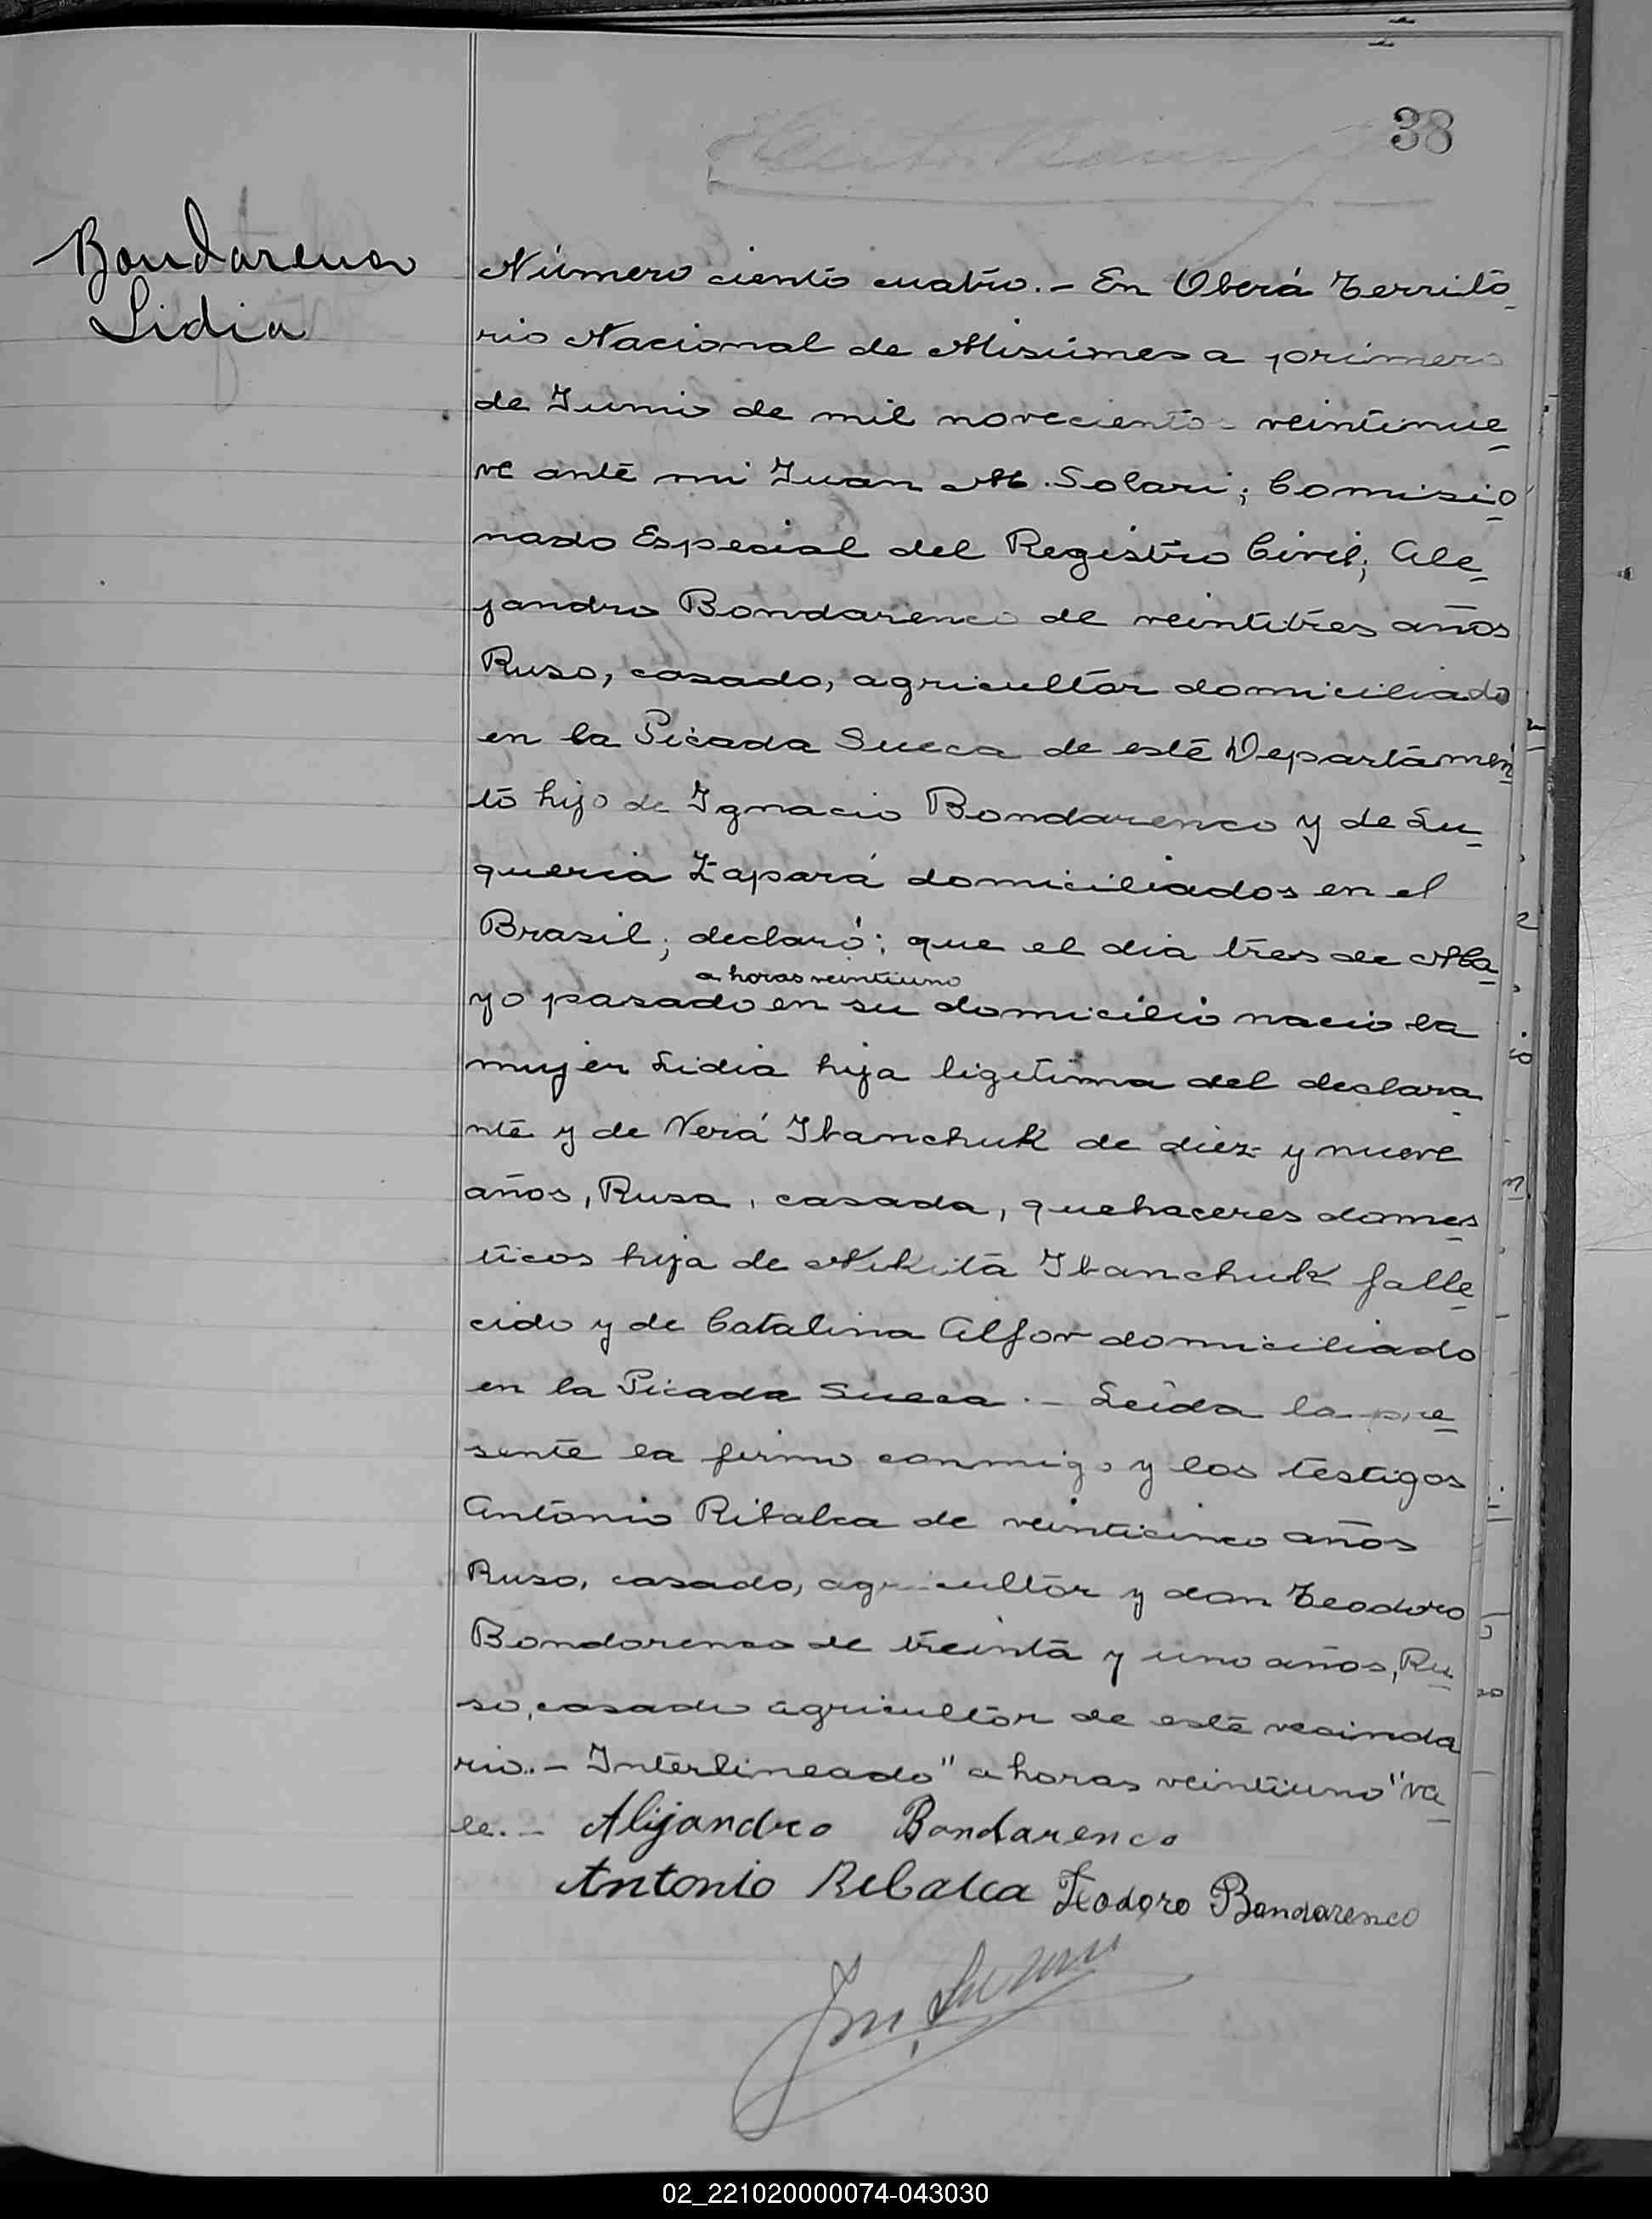 38
Bondarenco
Lidia
Número ciento cuatro.- En Oberá Territo
rio Nacional de Misiones a primero
de Junio de mil novecientos veintinue
ve ante mi Juan M. Solari; Comisio
nado Especial del Registro Civil; Ale
jandro Bondarenco de veintitres años
Ruso, casado, agricultor domiciliado
en la Picada Sueca de este Departamen
to hijo de Ignacio Bondarenco y de Lu
queria Zapará domiciliados en el
Brasil; declaró: que el dia tres de Ma
a horas veintiuno
yo pasado en su domicilio nacio la
mujer Lidia hija ligitima del declara
nte y de Verá Ibanchuk de diez y nueve
años, Rusa, casada, quehaceres domes
ticos hija de Nikita Ibanchuk falle
cido y de Catalina Alfor domiciliado
en la Picada Sueca.- Leida la pre
sente la firmo conmigo y los testigos
Antonio Ribalca de veinticinco años
Ruso, casado, agricultor y don Teodoro
Bondarenco de treinta y uno años, Ru
so, casado agricultor de este vecinda
rio.- Interlineado "a horas veintiuno" va
le.- Alijandro Bondarenco
Antonio Rebalca Teodoro Bondarenco
02_221020000074-043030